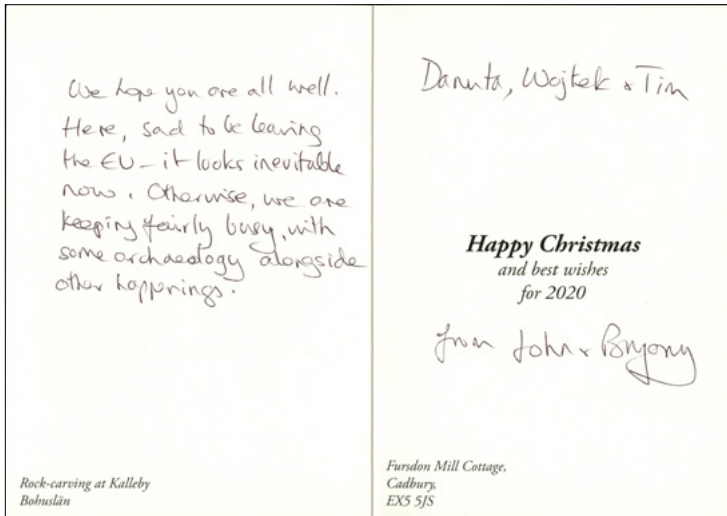 We hope you are all well.
Here, sad to be leaving
the EU – it looks inevitable
now. Otherwise, we are
keeping fairly busy, with
some archaeology alongside
other happenings.
Rock-carving at Kalleby
Bohuslän
Danuta, Wojtek & Tim
Happy Christmas
and best wishes
for 2020
from John & Bryony
Fursdon Mill Cottage,
Cadbury,
EX5 5JS